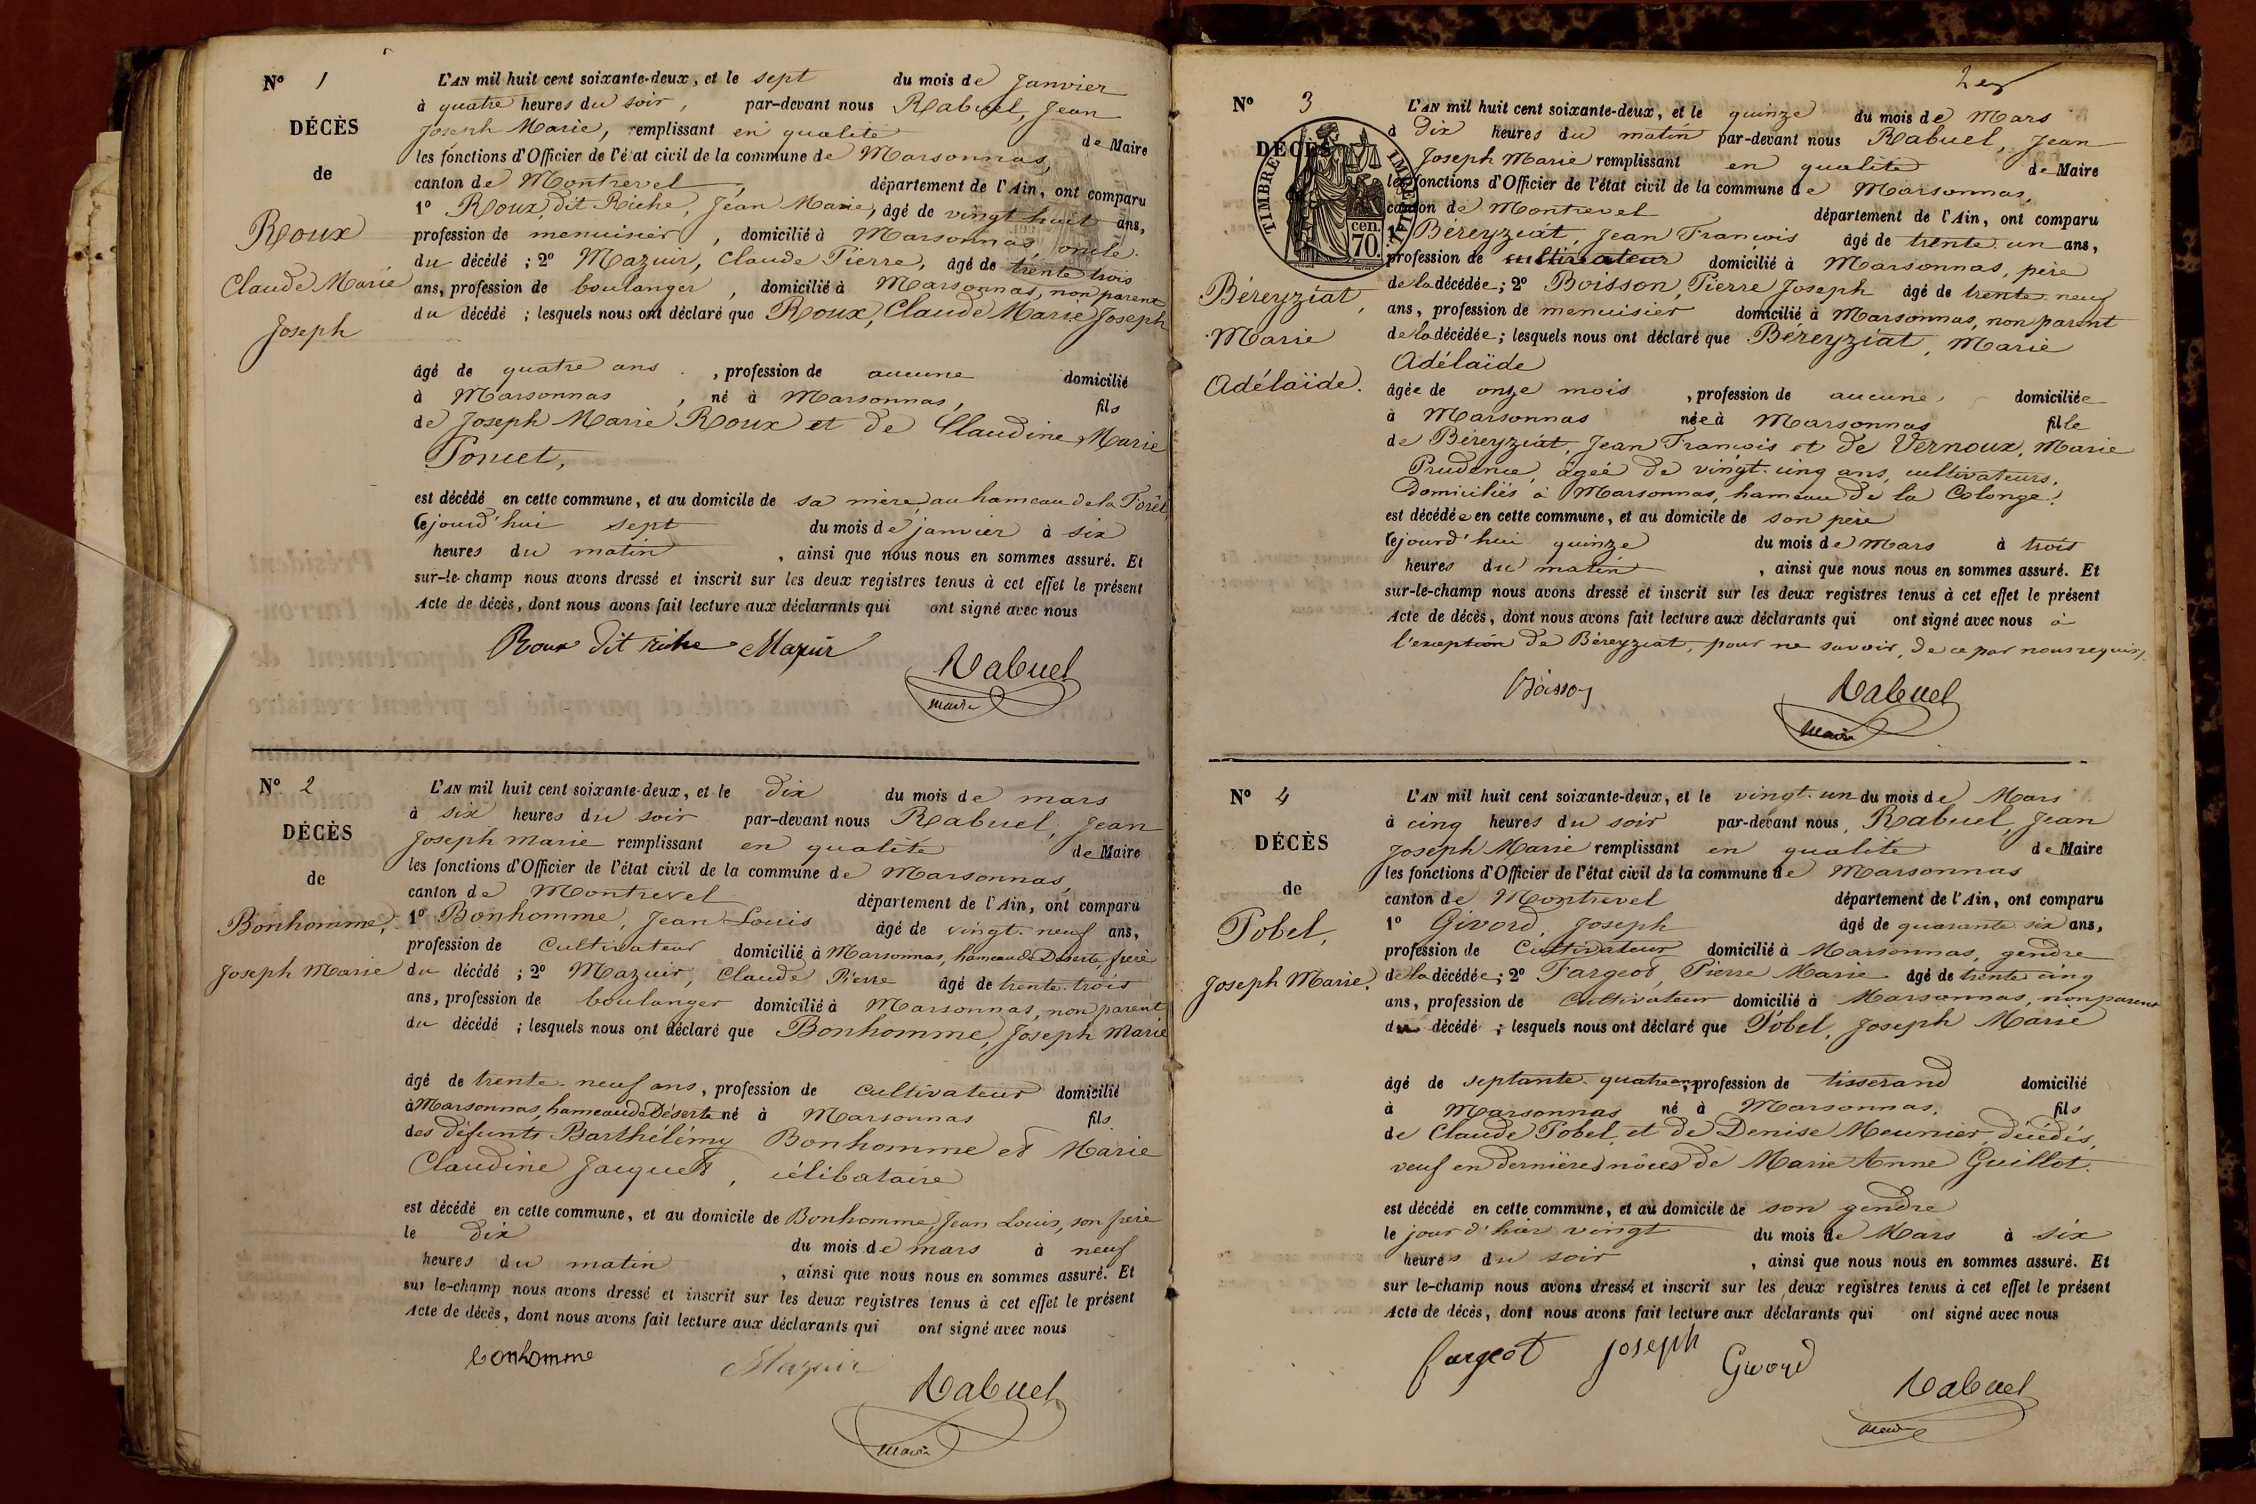 N° 1
DÉCÈS
de
Roux
Claude Marie
Joseph
L'AN mil huit cent soixante-deux, et le sept du mois de Janvier
à quatre heures du soir, par-devant nous Rabuel, Jean
Joseph Marie, remplissant en qualité de Maire
les fonctions d'Officier de l'état civil de la commune de Marsonnas,
canton de Montrevel, département de l'Ain, ont comparu
1° Roux, dit Riche, Jean Marie, âgé de vingt huit ans,
profession de menuisier, domicilié à Marsonnas, oncle
du décédé ; 2° Mazuir, Claude Pierre, âgé de trente trois
ans, profession de boulanger, domicilié à Marsonnas, non parent
du décédé ; lesquels nous ont déclaré que Roux, Claude Marie Joseph
âgé de quatre ans, profession de aucune domicilié
à Marsonnas, né à Marsonnas, fils
de Joseph Marie Roux et de Claudine Marie
Poncet,
est décédé en cette commune, et au domicile de sa mère, au hameau de la Forêt,
cejourd'hui sept du mois de janvier à six
heures du matin, ainsi que nous nous en sommes assuré. Et
sur-le-champ nous avons dressé et inscrit sur les deux registres tenus à cet effet le présent
Acte de décès, dont nous avons fait lecture aux déclarants qui ont signé avec nous
Roux dit riche Mazuir
Rabuel
maire
N° 2
DÉCÈS
de
Bonhomme,
Joseph Marie
L'AN mil huit cent soixante-deux, et le dix du mois de mars
à six heures du soir par-devant nous Rabuel, Jean
Joseph Marie remplissant en qualité de Maire
les fonctions d'Officier de l'état civil de la commune de Marsonnas,
canton de Montrevel département de l'Ain, ont comparu
1° Bonhomme, Jean Louis âgé de vingt-neuf ans,
profession de Cultivateur domicilié à Marsonnas, hameau de Déserte, frère
du décédé ; 2° Mazuir, Claude Pierre âgé de trente-trois
ans, profession de boulanger domicilié à Marsonnas, non parent
du décédé ; lesquels nous ont déclaré que Bonhomme, Joseph Marie
âgé de trente-neuf ans, profession de cultivateur domicilié
à Marsonnas, hameau de Déserte né à Marsonnas fils
des défunts Barthélémy Bonhomme et Marie
Claudine Jacquet, célibataire
est décédé en cette commune, et au domicile de Bonhomme, Jean Louis, son frère
le dix du mois de mars à neuf
heures du matin, ainsi que nous nous en sommes assuré. Et
sur le-champ nous avons dressé et inscrit sur les deux registres tenus à cet effet le présent
Acte de décès, dont nous avons fait lecture aux déclarants qui ont signé avec nous
bonhomme Mazuir
Rabuel
maire
N° 3
DÉCÈS
TIMBRE IMPERIAL
70 cen.
Béreyziat,
Marie
Adélaïde.
L'AN mil huit cent soixante-deux, et le quinze du mois de Mars
à dix heures du matin par-devant nous Rabuel, Jean
Joseph Marie remplissant en qualité de Maire
les fonctions d'Officier de l'état civil de la commune de Marsonnas,
canton de Montrevel département de l'Ain, ont comparu
1° Béreyziat, Jean François âgé de trente-un ans,
profession de cultivateur domicilié à Marsonnas, père
de la décédée ; 2° Boisson, Pierre Joseph âgé de trente-neuf
ans, profession de menuisier domicilié à Marsonnas, non parent
de la décédée ; lesquels nous ont déclaré que Béreyziat, Marie
Adélaïde
âgée de onze mois, profession de aucune domiciliée
à Marsonnas née à Marsonnas fille
de Béreyziat, Jean François et de Vernoux, Marie
Prudence, âgée de vingt-cinq ans, cultivateurs,
domiciliés à Marsonnas, hameau de la Colonge.
est décédée en cette commune, et au domicile de son père
cejourd'hui quinze du mois de Mars à trois
heures du matin, ainsi que nous nous en sommes assuré. Et
sur-le-champ nous avons dressé et inscrit sur les deux registres tenus à cet effet le présent
Acte de décès, dont nous avons fait lecture aux déclarants qui ont signé avec nous à
l'exception de Béreyziat, pour ne savoir, de ce par nous requis.
Boisson
Rabuel
Maire
N° 4
DÉCÈS
de
Pobel,
Joseph Marie.
L'AN mil huit cent soixante-deux, et le vingt-un du mois de Mars
à cinq heures du soir par-devant nous, Rabuel, Jean
Joseph Marie remplissant en qualité de Maire
les fonctions d'Officier de l'état civil de la commune de Marsonnas
canton de Montrevel département de l'Ain, ont comparu
1° Givord, Joseph âgé de quarante-six ans,
profession de Cultivateur domicilié à Marsonnas, gendre
de la décédée ; 2° Fargeot, Pierre Marie âgé de trente-cinq
ans, profession de Cultivateur domicilié à Marsonnas, non parent
du décédé ; lesquels nous ont déclaré que Pobel, Joseph Marie
âgé de septante-quatre ans, profession de tisserand domicilié
à Marsonnas né à Marsonnas, fils
de Claude Pobel, et de Denise Meunier, décédés,
veuf en dernières noces de Marie Anne Guillot.
est décédé en cette commune, et au domicile de son gendre
le jour d'hier vingt du mois de Mars à six
heures du soir, ainsi que nous nous en sommes assuré. Et
sur le-champ nous avons dressé et inscrit sur les deux registres tenus à cet effet le présent
Acte de décès, dont nous avons fait lecture aux déclarants qui ont signé avec nous
fargeot Joseph Givord
Rabuel